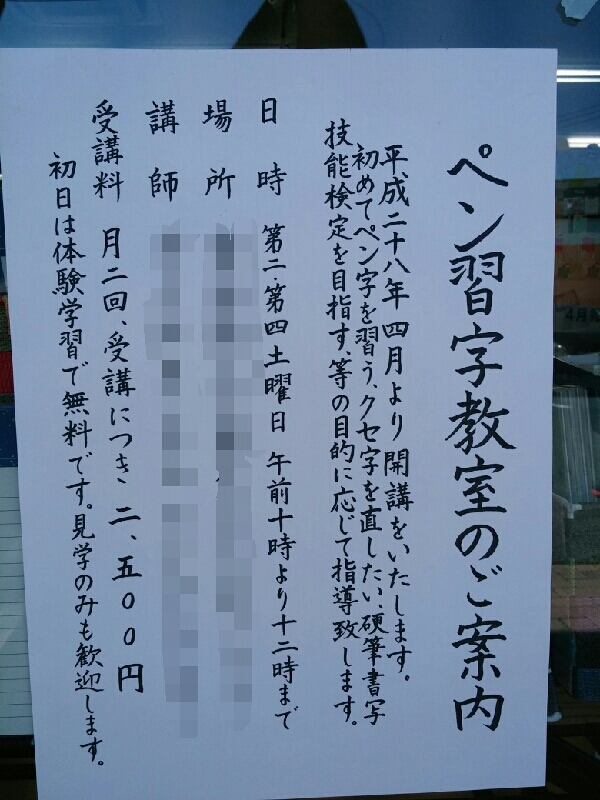 ペン習字教室のご案内
平成二十八年四月より開講をいたします。
初めてペン字を習う、クセ字を直したい、硬筆書写
技能検定を目指す、等の目的に応じて指導致します。
日時 第二・第四土曜日 午前十時より十二時まで
場所
講師
受講料 月二回、受講につき、二、五〇〇円
初日は体験学習で無料です。見学のみも歓迎します。